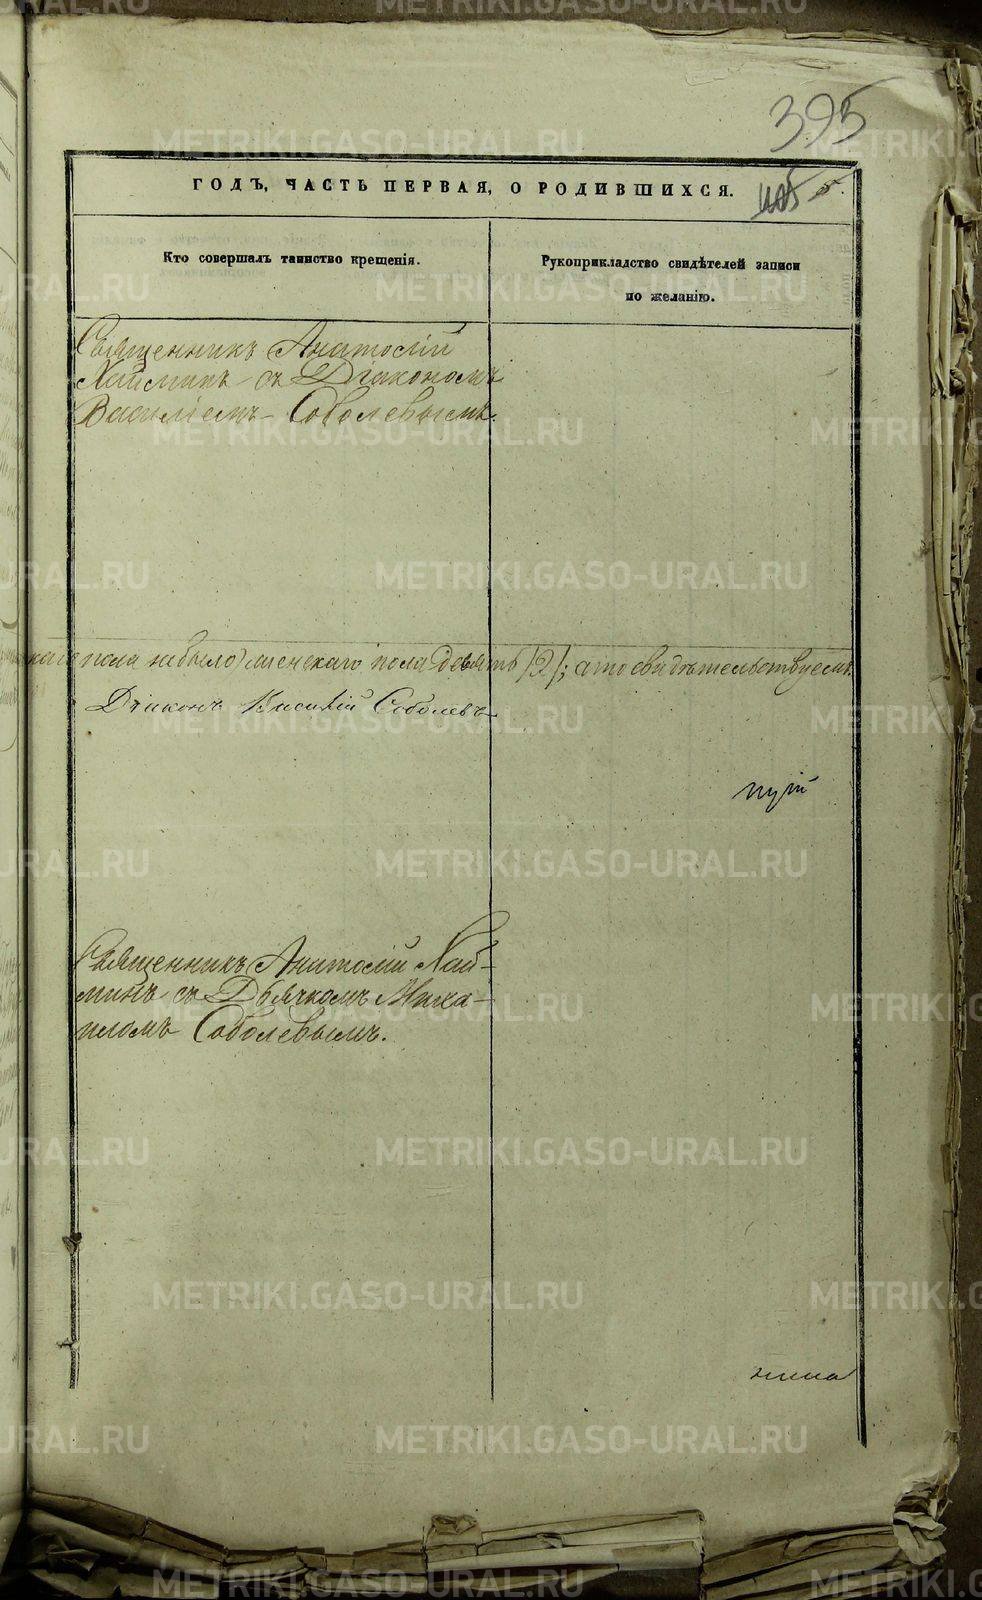 395
ГОДЪ, ЧАСТЬ ПЕРВАЯ, О РОДИВШИХСЯ.
Кто совершалъ таинство крещенія.
Рукоприкладство свидѣтелей записи
по желанію.
Священникъ Анатолій
Хайминъ съ Діакономъ
Василіемъ Соболевымъ.
каго пола небыло, женскаго пола девять /2/; а то свидѣтельствуемъ.
Діаконъ Василій Соболевъ
Священникъ Анатолій Хай-
минъ съ Дьячкомъ Миха-
иломъ Соболевымъ.
METRIKI.GASO-URAL.RU